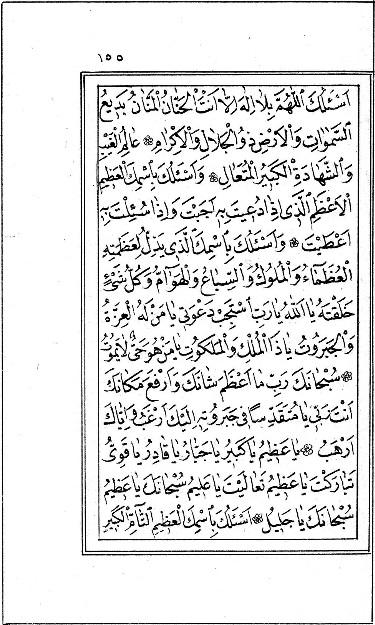 ١٥٥
اَسْئَلُكَ اللّٰهُمَّ بِلَا اِلٰهَ اِلَّا اَنْتَ الْحَنَّانُ الْمَنَّانُ بَدِيْعُ
السَّمٰوَاتِ وَالْاَرْضِ ذُو الْجَلَالِ وَالْاِكْرَامِ ۞ عَالِمُ الْغَيْبِ
وَالشَّهَادَةِ الْكَبِيْرُ الْمُتَعَالِ ۞ وَاَسْئَلُكَ بِاسْمِكَ الْعَظِيْمِ
الْاَعْظَمِ الَّذِىْ اِذَا دُعِيْتَ بِهٖ اَجَبْتَ وَاِذَا سُئِلْتَ بِهٖ
اَعْطَيْتَ ۞ وَاَسْئَلُكَ بِاسْمِكَ الَّذِىْ يَذِلُّ لِعَظَمَتِهِ
الْعُظَمَاءُ وَالْمُلُوْكُ وَالسِّبَاعُ وَالْهَوَامُّ وَكُلُّ شَىْءٍ
خَلَقْتَهُ يَا اَللّٰهُ يَارَبِّ اسْتَجِبْ دَعْوَتِىْ يَا مَنْ لَهُ الْعِزَّةُ
وَالْجَبَرُوْتُ يَا ذَا الْمُلْكِ وَالْمَلَكُوْتِ يَا مَنْ هُوَ حَىٌّ لَا يَمُوْتُ
۞ سُبْحَانَكَ رَبِّ مَا اَعْظَمَ شَانَكَ وَاَرْفَعَ مَكَانَكَ
اَنْتَ رَبِّىْ يَا مُتَقَدِّسًا فِىْ جَبَرُوْتِهِ اِلَيْكَ اَرْغَبُ وَاِيَّاكَ
اَرْهَبُ ۞ يَا عَظِيْمُ يَا كَبِيْرُ يَا جَبَّارُ يَا قَادِرُ يَا قَوِىُّ
تَبَارَكْتَ يَا عَظِيْمُ تَعَالَيْتَ يَا عَلِيْمُ سُبْحَانَكَ يَا عَظِيْمُ
سُبْحَانَكَ يَا جَلِيْلُ ۞ اَسْئَلُكَ بِاسْمِكَ الْعَظِيْمِ التَّامِّ الْكَبِيْرِ